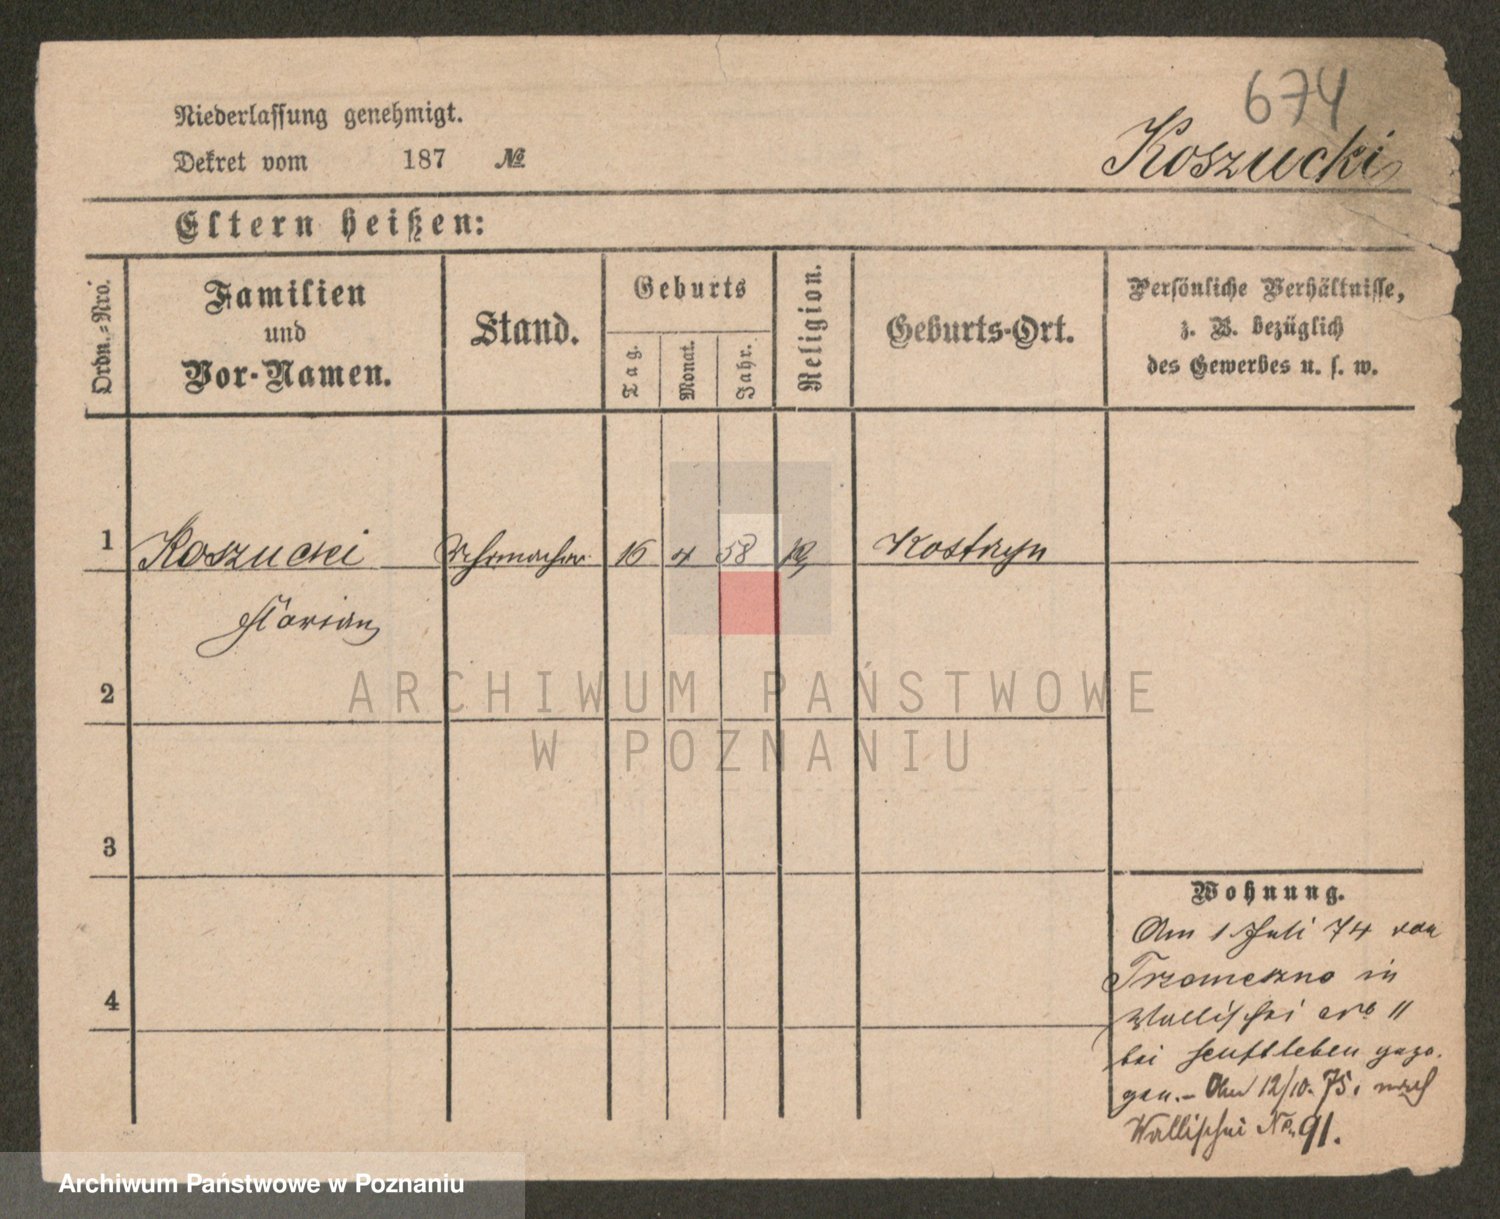 674
Niederlassung genehmigt.
Koszucki
Dekret vom 187 №
Eltern heißen:
Ordn.-Nro.
Familien
und
Vor-Namen.
Stand.
Geburts
Tag.
Monat.
Jahr.
Religion.
Geburts-Ort.
Persönliche Verhältnisse,
z. B. bezüglich
des Gewerbes u. s. w.
1 Koszucki Uhrmacher 16 4 58 K Kostrzyn
Florian
2
3
4
Wohnung.
Am 1 Juli 74 von
Trzemeszno in
Wallischei No 11
bei Senftleben gezo-
gen. - Am 12/10. 75. nach
Wallischei No. 91.
ARCHIWUM PAŃSTWOWE
W POZNANIU
Archiwum Państwowe w Poznaniu